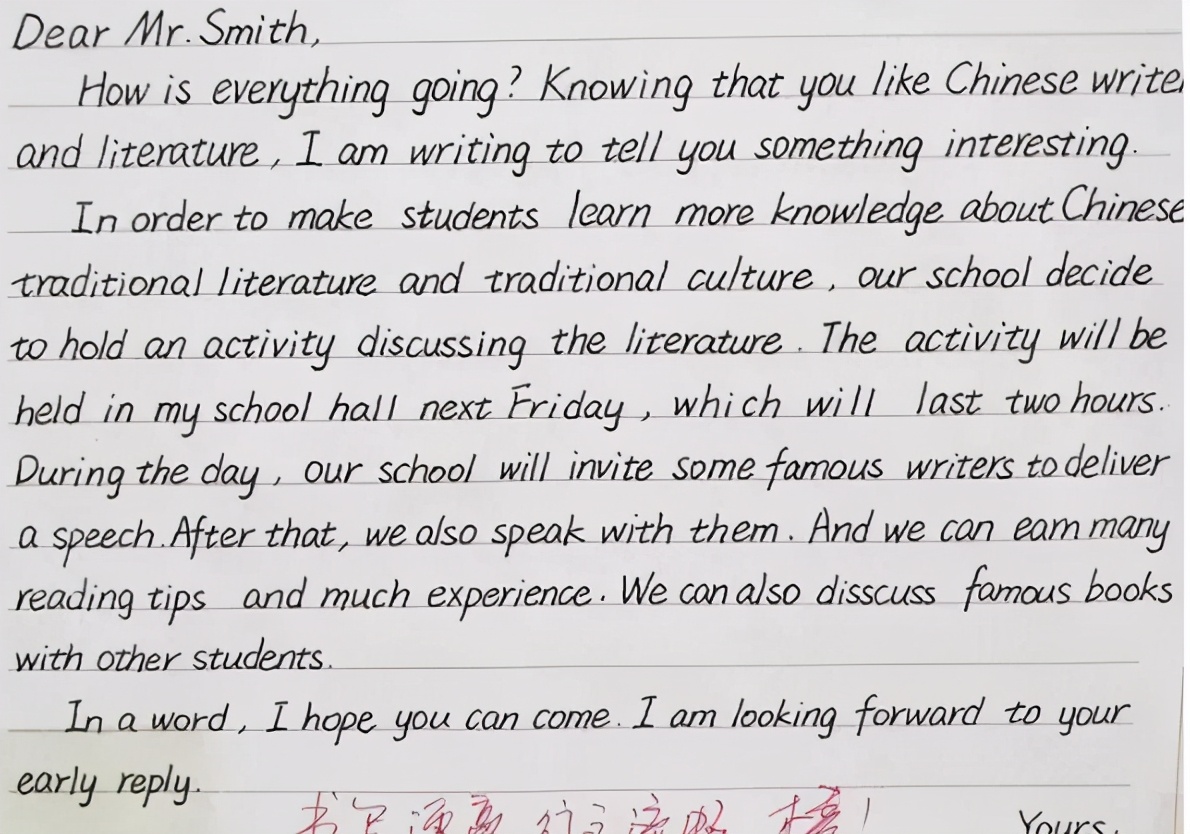 Dear Mr. Smith,
How is everything going? Knowing that you like Chinese write
and literature, I am writing to tell you something interesting.
In order to make students learn more knowledge about Chinese
traditional literature and traditional culture, our school decide
to hold an activity discussing the literature. The activity will be
held in my school hall next Friday, which will last two hours.
During the day, our school will invite some famous writers to deliver
a speech. After that, we also speak with them. And we can earn many
reading tips and much experience. We can also disscuss famous books
with other students.
In a word, I hope you can come. I am looking forward to your
early reply.
Yours,